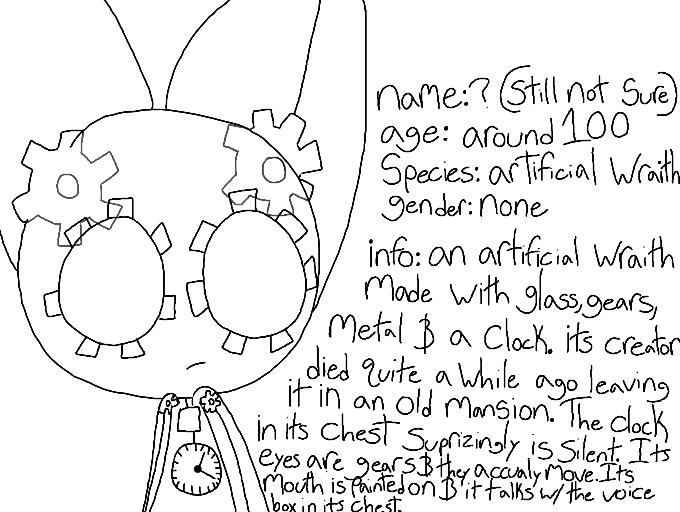 name:? (Still not Sure)
age: around 100
Species: artificial Wraith
gender: none
info: an artificial Wraith
Made with glass, gears,
Metal & a Clock. its creator
died quite a while ago leaving
it in an old mansion. The clock
in its Chest Suprizingly is Silent. Its
eyes are gears & they accualy Move. Its
Mouth is Painted on & it talks w/ the voice
box in its Chest.